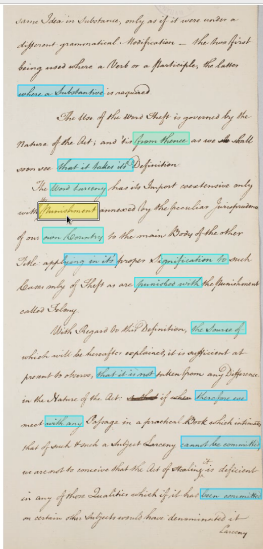 same Idea in Substance, only as if it were under a
different grammatical Modification — the two first
being used where a Verb or a Participle, the latter
where a Substantive is required
The Use of the Word Theft is governed by the
Nature of the Act; and 'tis from thence as we shall
soon see that it takes its Definition
The Word Larceny has its Import coextensive only
with Punishment annexed by the peculiar Jurisprudence
of our own Country to the main Body of the other
Title applying in its proper Signification to such
Cases only of Theft as are punished with the Punishment
called Felony.
With Regard to this Definition, the Source of
which will be hereafter explained, it is sufficient at
present to observe, that it is not taken from any Difference
in the Nature of the Act if therefore we
meet with any Passage in a practical Book which intimates
that of such & such a Subject Larceny cannot be committed
we are not to conceive that the Act of Stealing is deficient
in any of those Qualities which if it has been committed
on certain other Subjects would have denominated it
Larceny